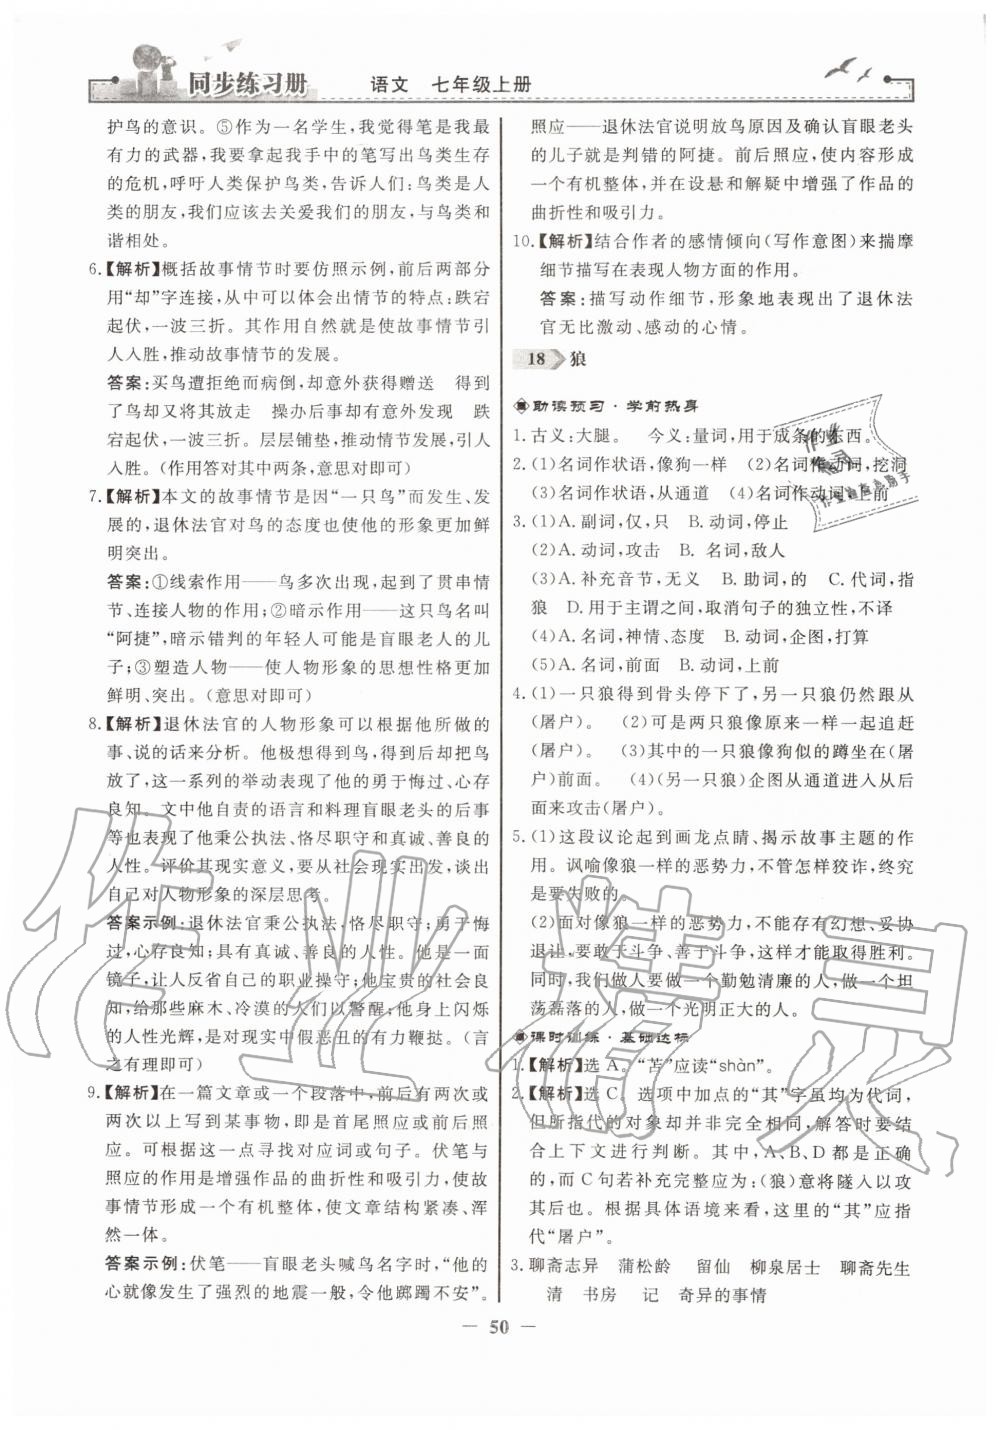 同步练习册 语文 七年级上册
护鸟的意识。⑤作为一名学生,我觉得笔是我最
有力的武器,我要拿起我手中的笔写出鸟类生存
的危机,呼吁人类保护鸟类,告诉人们:鸟类是人
类的朋友,我们应该去关爱我们的朋友,与鸟类和
谐相处。
6.【解析】概括故事情节时要仿照示例,前后两部分
用“却”字连接,从中可以体会出情节的特点:跌宕
起伏,一波三折。其作用自然就是使故事情节引
人入胜,推动故事情节的发展。
答案:买鸟遭拒绝而病倒,却意外获得赠送 得到
了鸟却又将其放走 操办后事却有意外发现 跌
宕起伏,一波三折。层层铺垫,推动情节发展,引
人入胜。(作用答对其中两条,意思对即可)
7.【解析】本文的故事情节是因“一只鸟”而发生、发
展的,退休法官对鸟的态度也使他的形象更加鲜
明突出。
答案:①线索作用——鸟多次出现,起到了贯串情
节、连接人物的作用;②暗示作用——这只鸟名叫
“阿捷”,暗示错判的年轻人可能是盲眼老人的儿
子;③塑造人物——使人物形象的思想性格更加
鲜明、突出。(意思对即可)
8.【解析】退休法官的人物形象可以根据他所做的
事、说的话来分析。他极想得到鸟,最后却又把鸟
放了,这一系列的举动表现了他的勇于悔过、心存
良知。文中他自责的语言和料理盲眼老头的后事
等也表现了他秉公执法、恪尽职守和真诚、善良的
人性。评价其现实意义,要从社会现实出发,谈出
自己对人物形象的深层思考。
答案示例:退休法官秉公执法,恪尽职守;勇于悔
过,心存良知;具有真诚、善良的人性。他是一面
镜子,让人反省自己的职业操守;他宝贵的社会良
知,给那些麻木、冷漠的人们以警醒;他身上闪烁
的人性光辉,是对现实中假恶丑的有力鞭挞。(言
之有理即可)
9.【解析】在一篇文章或一个段落中,前后有两次或
两次以上写到某事物,即是首尾照应或前后照
应。可根据这一点寻找对应词或句子。伏笔与
照应的作用是增强作品的曲折性和吸引力,使故
事情节形成一个有机整体,使文章结构紧凑、浑
然一体。
答案示例:伏笔——盲眼老头喊鸟名字时,“他的
心就像发生了强烈的地震一般,令他踯躅不安”。
照应——退休法官说明放鸟原因及确认盲眼老头
的儿子就是判错的阿捷。前后照应,使内容形成
一个有机整体,并在设悬和解疑中增强了作品的
曲折性和吸引力。
10.【解析】结合作者的感情倾向(写作意图)来揣摩
细节描写在表现人物方面的作用。
答案:描写动作细节,形象地表现出了退休法
官无比激动、感动的心情。
18 狼
助读预习·学前热身
1.古义:大腿。 今义:量词,用于成条的东西。
2.(1)名词作状语,像狗一样 (2)名词作动词,挖洞
(3)名词作状语,从通道 (4)名词作动词,上前
3.(1)A.副词,仅,只 B.动词,停止
(2)A.动词,攻击 B.名词,敌人
(3)A.补充音节,无义 B.助词,的 C.代词,指
狼 D.用于主谓之间,取消句子的独立性,不译
(4)A.名词,神情、态度 B.动词,企图,打算
(5)A.名词,前面 B.动词,上前
4.(1)一只狼得到骨头停下了,另一只狼仍然跟从
(屠户)。 (2)可是两只狼像原来一样一起追赶
(屠户)。 (3)其中的一只狼像狗似的蹲坐在(屠
户)前面。 (4)(另一只狼)企图从通道进入从后
面来攻击(屠户)。
5.(1)这段议论起到画龙点睛、揭示故事主题的作
用。讽喻像狼一样的恶势力,不管怎样狡诈,终究
是要失败的。
(2)面对像狼一样的恶势力,不能存有幻想、妥协
退让,要敢于斗争、善于斗争,这样才能取得胜利。
同时,我们做人要做一个勤勉清廉的人,做一个坦
荡磊落的人,做一个光明正大的人。
课时训练·基础达标
1.【解析】选A。“苫”应读“shàn”。
2.【解析】选C。选项中加点的“其”字虽均为代词,
但所指代的对象却并非完全相同,解答时要结
合上下文进行判断。其中,A、B、D都是正确
的,而C句若补充完整为:(狼)意将隧入以攻
其后也。根据具体语境来看,这里的“其”应指
代“屠户”。
3.聊斋志异 蒲松龄 留仙 柳泉居士 聊斋先生
清 书房 记 奇异的事情
— 50 —
作业精灵